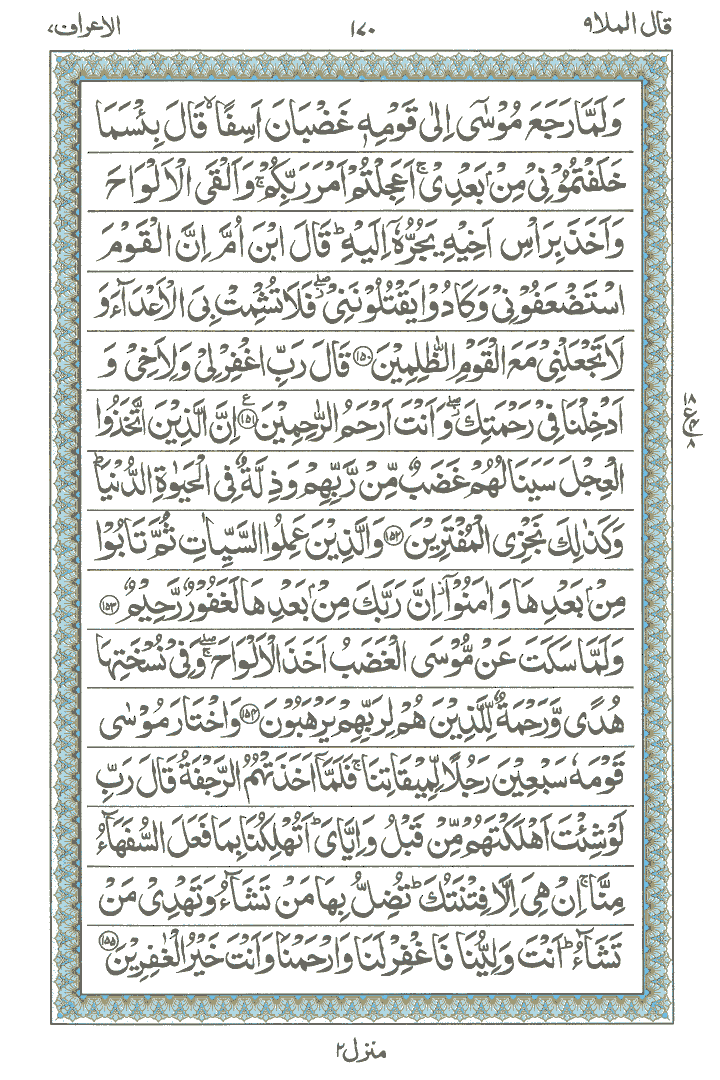 قال الملا٩ ١٧٠ الاعراف٧
وَلَمَّا رَجَعَ مُوْسٰۤى اِلٰى قَوْمِهٖ غَضْبَانَ اَسِفًا ۙ قَالَ بِئْسَمَا
خَلَفْتُمُوْنِيْ مِنْۢ بَعْدِيْ ۚ اَعَجِلْتُمْ اَمْرَ رَبِّكُمْ ۚ وَاَلْقَى الْاَلْوَاحَ
وَاَخَذَ بِرَاْسِ اَخِيْهِ يَجُرُّهٗۤ اِلَيْهِ ؕ قَالَ ابْنَ اُمَّ اِنَّ الْقَوْمَ
اسْتَضْعَفُوْنِيْ وَكَادُوْا يَقْتُلُوْنَنِيْ ۖ فَلَا تُشْمِتْ بِيَ الْاَعْدَآءَ وَ
لَا تَجْعَلْنِيْ مَعَ الْقَوْمِ الظّٰلِمِيْنَ ۝١٥٠ قَالَ رَبِّ اغْفِرْ لِيْ وَلِاَخِيْ وَ
اَدْخِلْنَا فِيْ رَحْمَتِكَ ۖ وَاَنْتَ اَرْحَمُ الرّٰحِمِيْنَ ۝١٥١ ع اِنَّ الَّذِيْنَ اتَّخَذُوا
الْعِجْلَ سَيَنَالُهُمْ غَضَبٌ مِّنْ رَّبِّهِمْ وَذِلَّةٌ فِي الْحَيٰوةِ الدُّنْيَا ؕ
وَكَذٰلِكَ نَجْزِي الْمُفْتَرِيْنَ ۝١٥٢ وَالَّذِيْنَ عَمِلُوا السَّيِّاٰتِ ثُمَّ تَابُوْا
مِنْۢ بَعْدِهَا وَاٰمَنُوْۤا ۡ اِنَّ رَبَّكَ مِنْۢ بَعْدِهَا لَغَفُوْرٌ رَّحِيْمٌ ۝١٥٣
وَلَمَّا سَكَتَ عَنْ مُّوْسَى الْغَضَبُ اَخَذَ الْاَلْوَاحَ ۖۚ وَفِيْ نُسْخَتِهَا
هُدًى وَّرَحْمَةٌ لِّلَّذِيْنَ هُمْ لِرَبِّهِمْ يَرْهَبُوْنَ ۝١٥٤ وَاخْتَارَ مُوْسٰى
قَوْمَهٗ سَبْعِيْنَ رَجُلًا لِّمِيْقَاتِنَا ۚ فَلَمَّاۤ اَخَذَتْهُمُ الرَّجْفَةُ قَالَ رَبِّ
لَوْ شِئْتَ اَهْلَكْتَهُمْ مِّنْ قَبْلُ وَاِيَّايَ ؕ اَتُهْلِكُنَا بِمَا فَعَلَ السُّفَهَآءُ
مِنَّا ۚ اِنْ هِيَ اِلَّا فِتْنَتُكَ ؕ تُضِلُّ بِهَا مَنْ تَشَآءُ وَتَهْدِيْ مَنْ
تَشَآءُ ؕ اَنْتَ وَلِيُّنَا فَاغْفِرْ لَنَا وَارْحَمْنَا وَاَنْتَ خَيْرُ الْغٰفِرِيْنَ ۝١٥٥
١٨
ع
٨
منزل٢